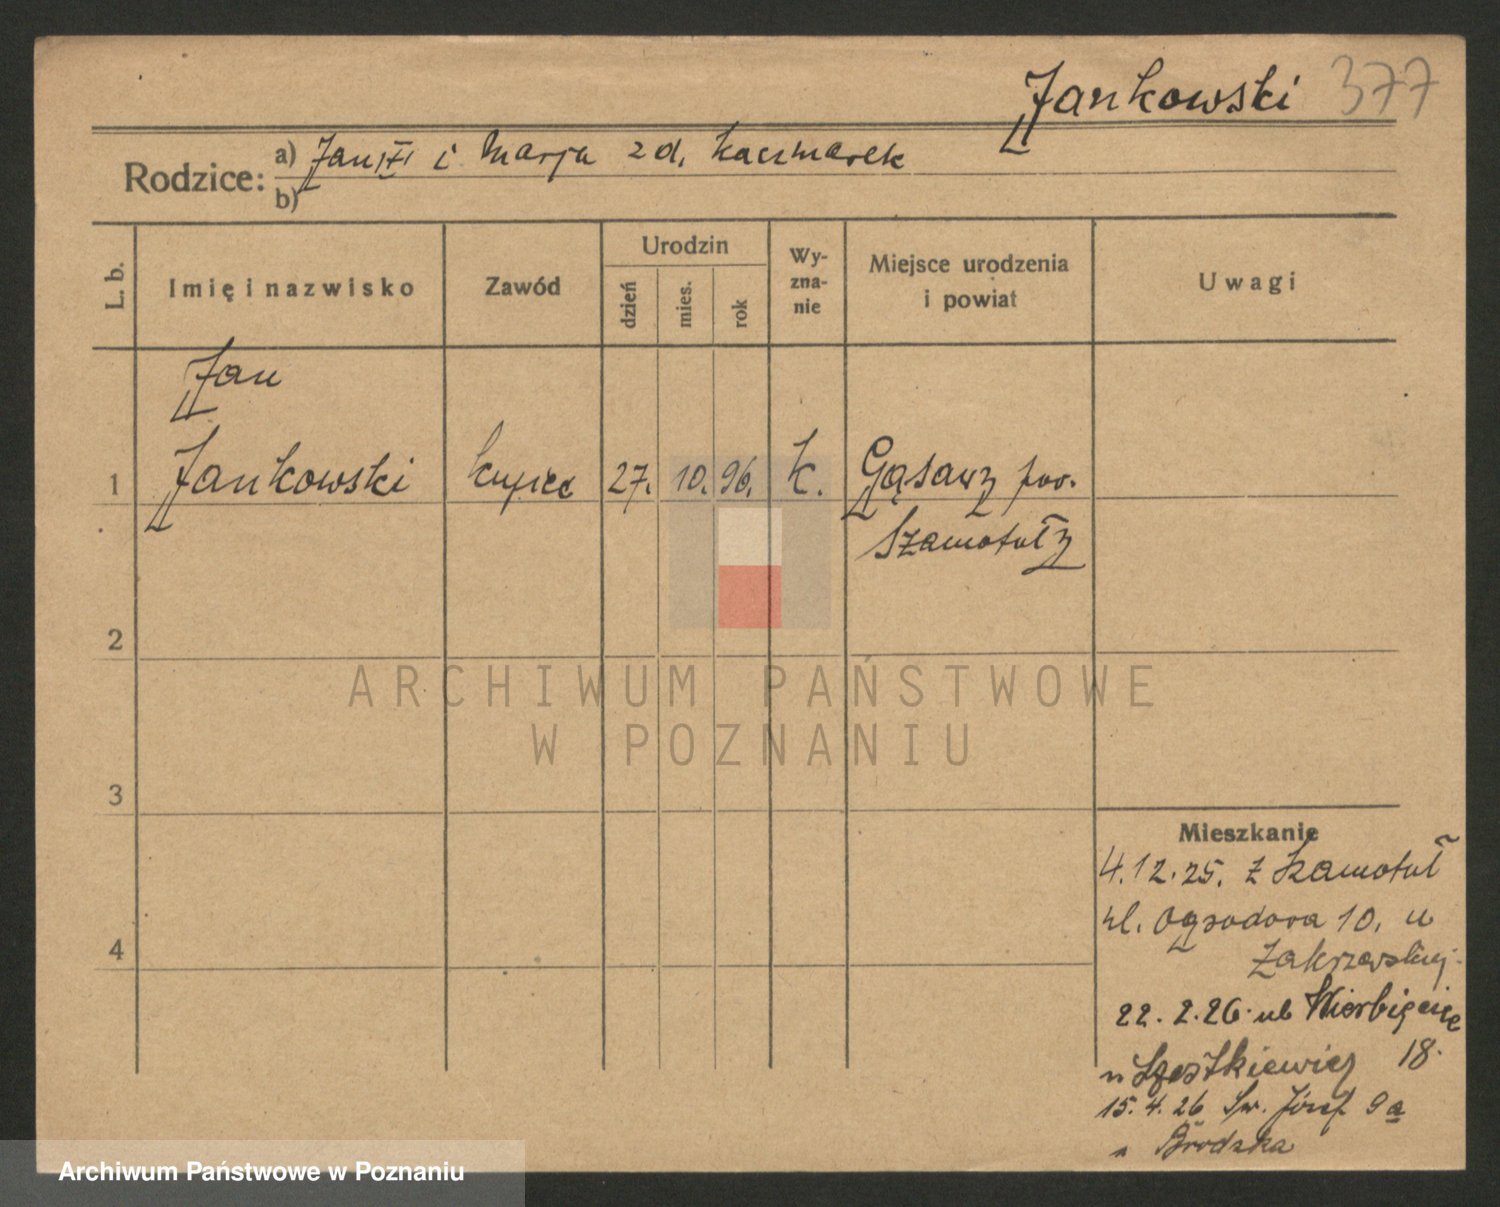 Jankowski 377
Rodzice: a) Jan i Marja z d. Kaczmarek
b)
L. b.
Imię i nazwisko
Zawód
Urodzin
dzień
mies.
rok
Wy-
zna-
nie
Miejsce urodzenia
i powiat
Uwagi
Jan
1 Jankowski kupiec 27. 10. 96. k. Gąsawy pow.
Szamotuły
2
ARCHIWUM PAŃSTWOWE
W POZNANIU
3
Mieszkanie
4.12.25. z Szamotuł
ul. Ogrodowa 10. u
4
Zakrzewskiej
22. 2. 26. ul. Wierbięcice
18.
15. 4. 26 Św. Józef 9a
n Brodzka
Archiwum Państwowe w Poznaniu